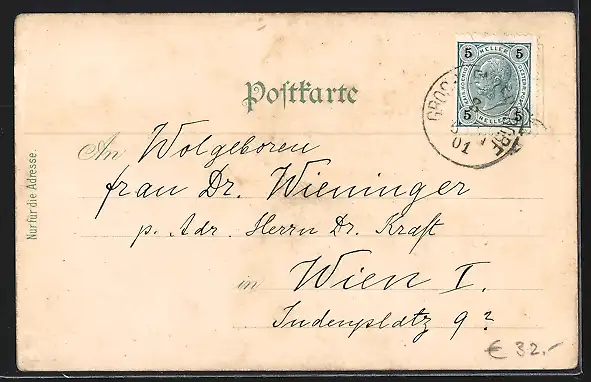 5 HELLER 5
5 HELLER 5
GROSS
01
Postkarte
An Wolgeboren
frau Dr. Wieninger
p. Adr. Herrn Dr. Kraft
in Wien I.
Judenplatz 9?
Nur für die Adresse.
€ 32.-